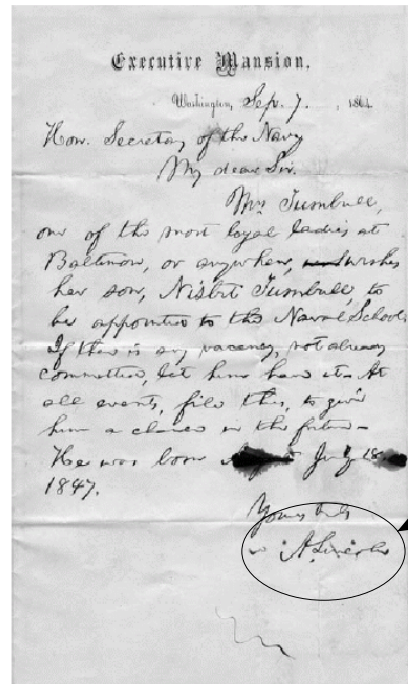 Executive Mansion,
Washington, Sep. 7, 1864
Hon. Secretary of the Navy
My dear Sir.
Mrs Turnbull,
one of the most loyal ladies at
Baltimore, or anywhere, wishes
her son, Nisbit Turnbull, to
be appointed to the Naval School.
If there is any vacancy, not already
committed, let him have it. At
all events, file this, to give
him a chance in the future.
He was born July 18
1847.
Yours truly
A. Lincoln